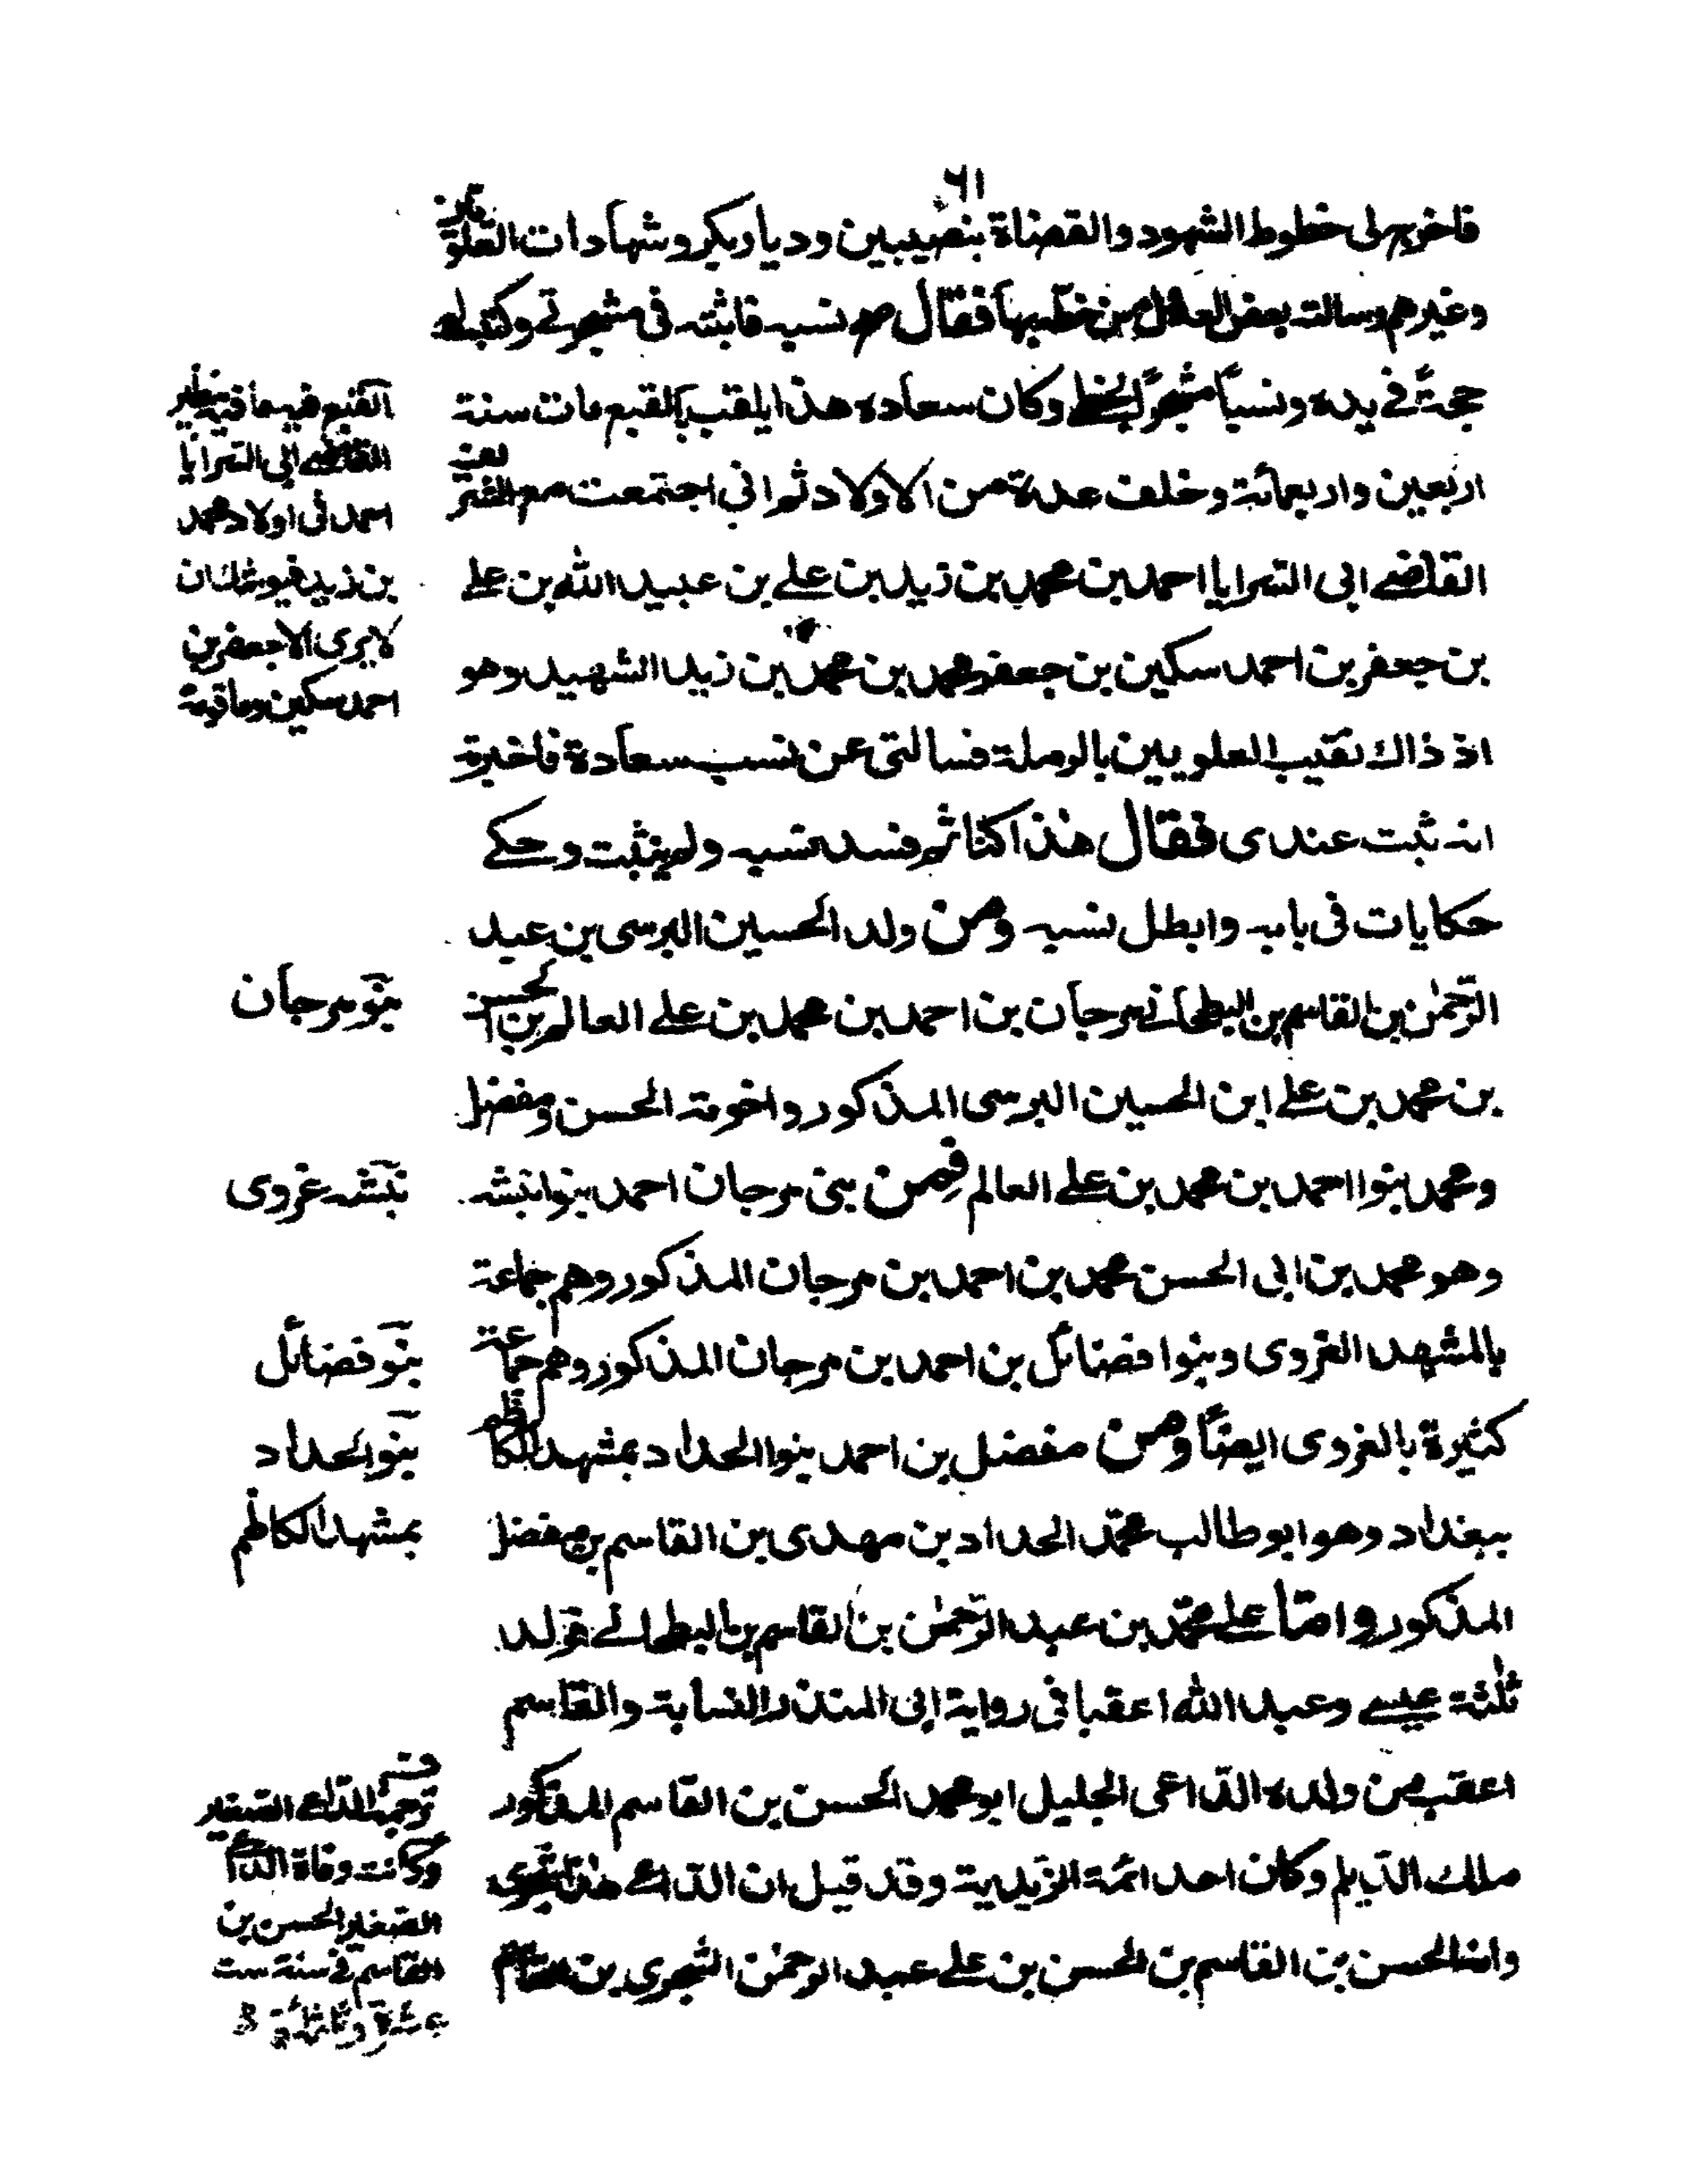 ٦١
فاخرج لى خطوط الشهود والقضاة بنصيبين وديار بكر وشهادات العلويين
وغيرهم وسالته بعض العلا من خطبها فقال صح نسبه فاثبته فى مشجرتى وكتبت له
حجة فى يده ونسباً مشجراً بخطى وكان سعاده هذا يلقب بالقبع مات سنة
اربعين واربعمائة وخلف عدة من الاولاد ثم انى اجتمعت مع الشريف
القاضى ابى السرايا احمد بن محمد بن زيد بن على بن عبيد الله بن على
بن جعفر بن احمد سكين بن جعفر محمد بن محمد بن زيد الشهيد وهو
اذ ذاك نقيب العلويين بالرملة فسالتى عن نسب سعادة فاخبرته
انه ثبت عندى فقال هذا كنا ثم فسد نسبه ولم يثبت وحكى
حكايات فى بابه وابطل نسبه ومن ولد الحسين البرسى بن عبد
الرحمٰن بن القاسم بن البطحانى مرجان بن احمد بن محمد بن على العالم بن الحسن
بن محمد بن على ابن الحسين البرسى المذكور واخوته الحسن ومفضل
ومحمد بنوا احمد بن محمد بن على العالم فمن بنى مرجان احمد بنوا نبشه
وهو محمد بن ابى الحسن محمد بن احمد بن مرجان المذكور وهم جماعة
بالمشهد الغروى وبنوا فضائل بن احمد بن مرجان المذكور وهم جماعة
كثيرة بالغروى ايضاً ومن مفضل بن احمد بنوا الحداد بمشهد الكاظم
ببغداد وهو ابو طالب محمّد الحداد بن مهدى بن القاسم بن مفضل
المذكور وامّا على محمّد بن عبد الرّحمٰن بن القاسم بن البطحانى فولد
ثلٰثة عيسى وعبد الله اعقبا فى رواية ابى المنذر النسابة والقاسم
اعقب من ولده الدّاعى الجليل ابو محمد الحسن بن القاسم المذكور
ملك الدّيلم وكان احد ائمة الزيدية وقد قيل ان الدّاعى هذا شجرى
وانه الحسن بن القاسم بن الحسن بن على عبد الرحمٰن الشجرى بن القاسم
القبع فيه ما فيه
القاضى ابى السرايا
احمد فى اولاد محمد
بن زيد
لا يرى الا جعفر بن
احمد سكين وما قومه
بنو مرجان
نبشه غروى
بنو فضائل
بنو الحداد
بمشهد الكاظم
ترجمة الدّاعى الصغير
وكانت وفاة الدّاعى
الصغير الحسن بن
القاسم فى سنة ست
عشرة وثلثمائة